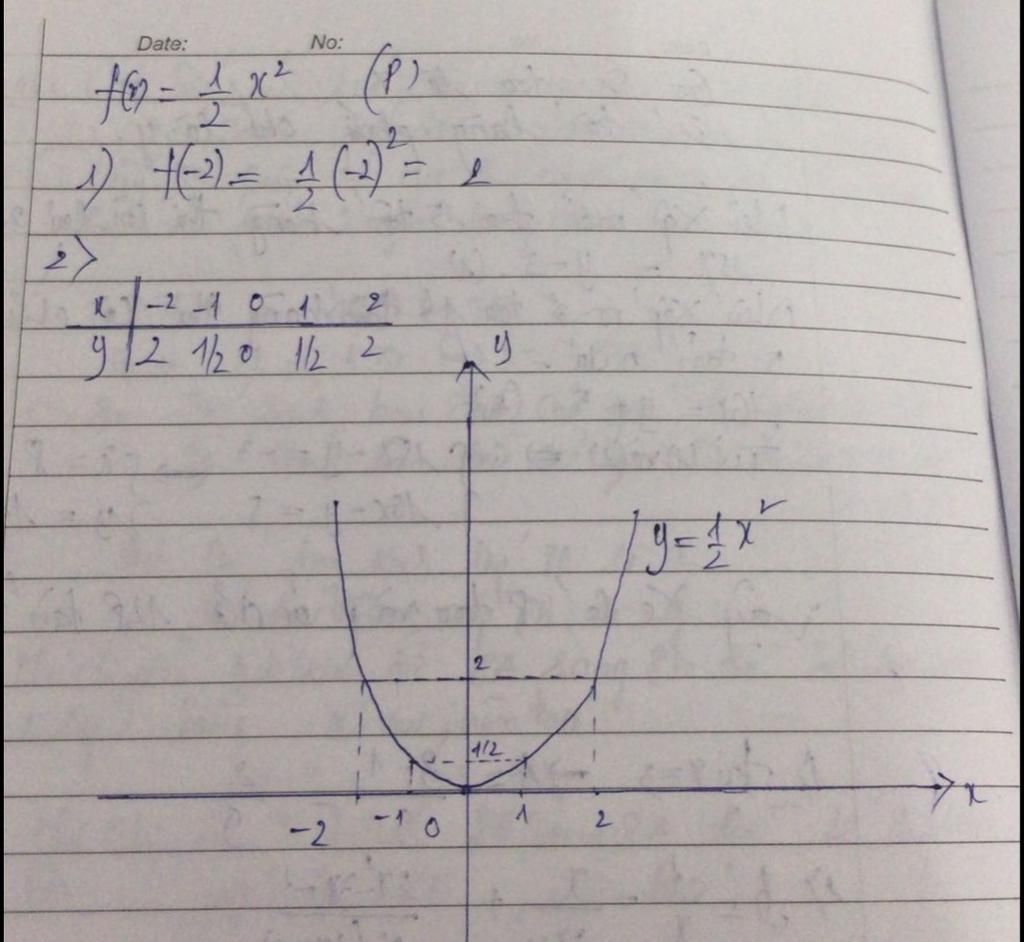 Date: No:
f(x) = 1/2 x² (P)
1) f(-2) = 1/2 (-2)² = 2
2>
x | -2 -1 0 1 2
y | 2 1/2 0 1/2 2
y
y = 1/2 x²
2
1/2
x
-2 -1 0 1 2